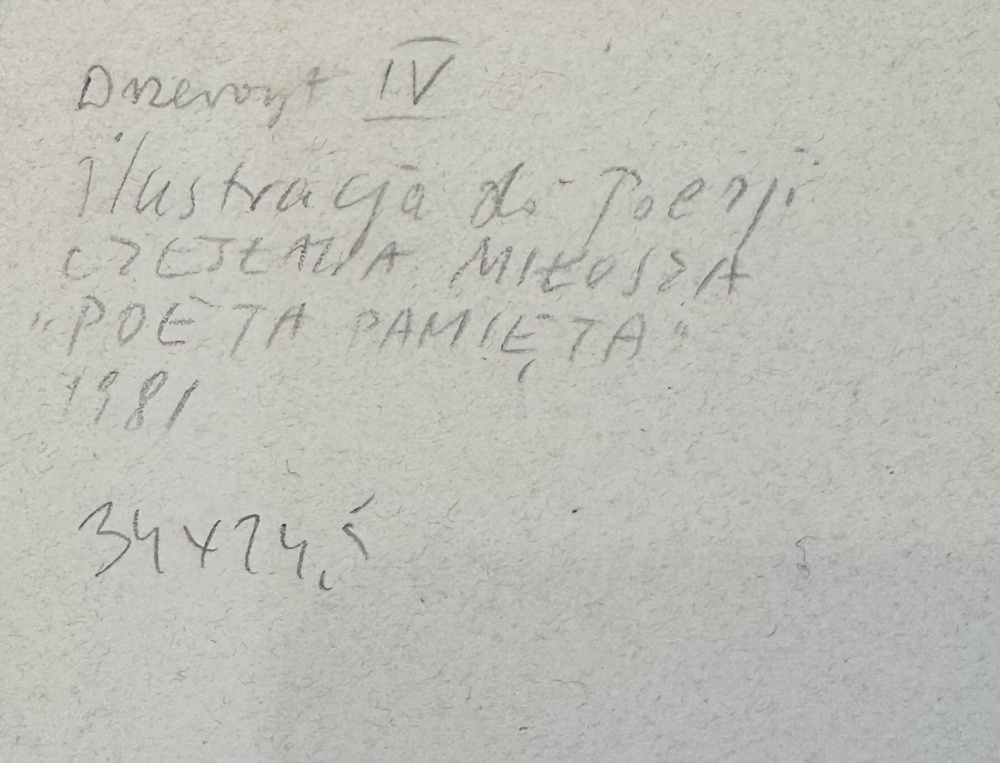 Drzeworyt IV
ilustracja do Poezji
CZESŁAWA MIŁOSZA
„POETA PAMIĘTA"
1981
34x24,5